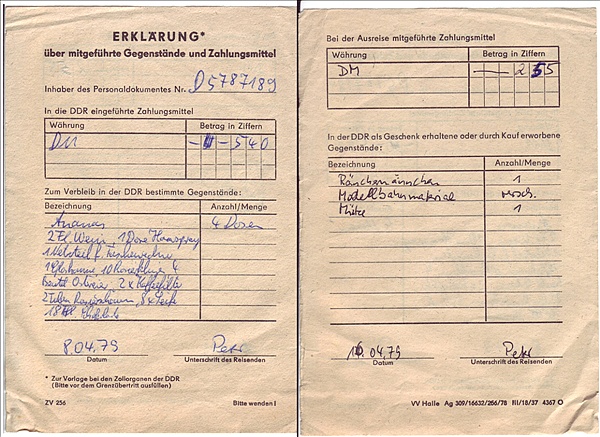 ERKLÄRUNG*
über mitgeführte Gegenstände und Zahlungsmittel
Inhaber des Personaldokumentes Nr. D5787189
In die DDR eingeführte Zahlungsmittel
Währung Betrag in Ziffern
DM 540
Zum Verbleib in der DDR bestimmte Gegenstände:
Bezeichnung Anzahl/Menge
Ananas 4 Dosen
2 Fl. Wein, 1 Dose Haarspray
1 Netzteil f. Taschenrechner
1 10 Rasierklingen 4
Beutel 2 x Kaffeefilter
2 Tuben Rasierschaum, 8 x Seife
18
8.04.79 Peter
Datum Unterschrift des Reisenden
* Zur Vorlage bei den Zollorganen der DDR
(Bitte vor dem Grenzübertritt ausfüllen)
ZV 256 Bitte wenden!
Bei der Ausreise mitgeführte Zahlungsmittel
Währung Betrag in Ziffern
DM — 255
In der DDR als Geschenk erhaltene oder durch Kauf erworbene
Gegenstände:
Bezeichnung Anzahl/Menge
Räuchermännchen 1
Modellbahnmaterial versch.
Mütze 1
.04.79 Peter
Datum Unterschrift des Reisenden
VV Halle Ag 309/16632/256/78 III/18/37 4367 O